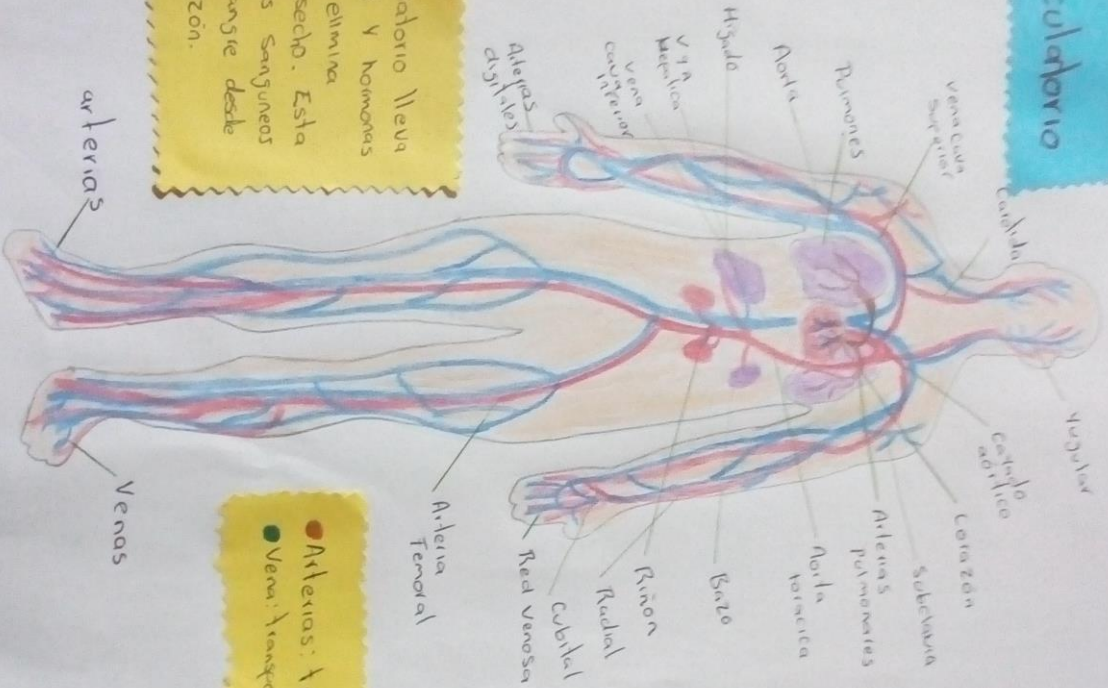 culatorio
atorio lleva
y hormonas
elimina
secho. Esta
s sanguneos
angre desde
zón.
vena cava
superior
Pulmones
Aorta
Hígado
Arterias
digitales
arterias
Yugular
cayado
aórtico
Corazón
Subclavia
Arterias
pulmonares
Aorta
toracica
Bazo
Riñon
Radial
Cubital
Red venosa
Arteria
Femoral
Venas
Arterias: t
Vena: transpo